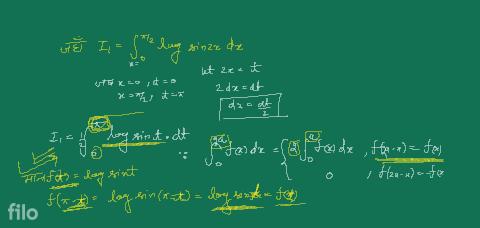 जहाँ I₁ = ∫_{x=0}^{π/2} log sin2x dx
let 2x = t
जब x=0, t=0
2dx = dt
x=π/2, t=π
dx = dt/2
I₁ = 1/2 ∫_0^π log sint · dt ∵ ∫_0^{2a} f(x) dx = { 2∫_0^a f(x) dx, f(2a-x) = f(x)
0, f(2a-x) = -f(x
माना f(t) = log sint
f(π-t) = log sin(π-t) = log sint = f(t)
filo